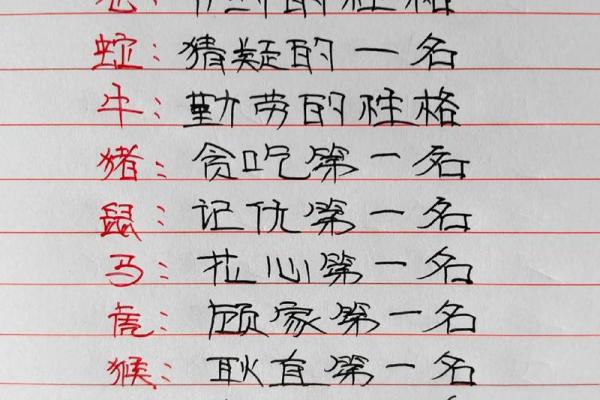 的性格
蛇：猜疑的一名
牛：勤劳的性格
猪：贪吃第一名
鼠：记仇第一名
马：拉心第一名
虎：顾家第一名
猴：耿直第一名